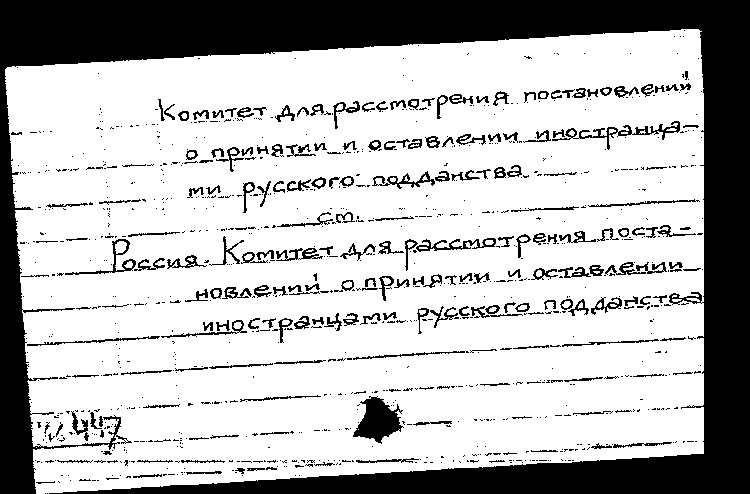 Комитет для рассмотрения постановлений
о принятии и оставлении иностранца-
ми русского подданства
см.
Россия. Комитет для рассмотрения поста-
новлений о принятии и оставлении
иностранцами русского подданства
447